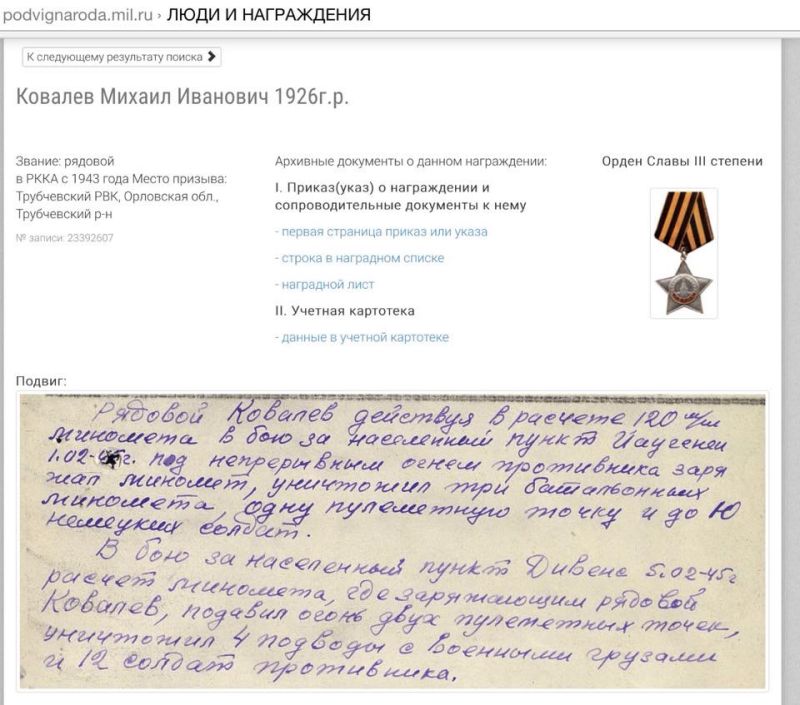 podvignaroda.mil.ru › ЛЮДИ И НАГРАЖДЕНИЯ
К следующему результату поиска
Ковалев Михаил Иванович 1926г.р.
Звание: рядовой
в РККА с 1943 года Место призыва:
Трубчевский РВК, Орловская обл.,
Трубчевский р-н
№ записи: 23392607
Архивные документы о данном награждении:
I. Приказ(указ) о награждении и
сопроводительные документы к нему
- первая страница приказ или указа
- строка в наградном списке
- наградной лист
II. Учетная картотека
- данные в учетной картотеке
Орден Славы III степени
Подвиг:
Рядовой Ковалев действуя в расчете 120 м/м
миномета в бою за населенный пункт
1.02-45г. под непрерывным огнем противника заря
жал миномет, уничтожил три батальонных
миномета, одну пулеметную точку и до 10
немецких солдат.
В бою за населенный пункт Дивенс 5.02-45г
расчет миномета, где заряжающим рядовой
Ковалев, подавил огонь двух пулеметных точек,
уничтожил 4 подводы с военными грузами
и 12 солдат противника.